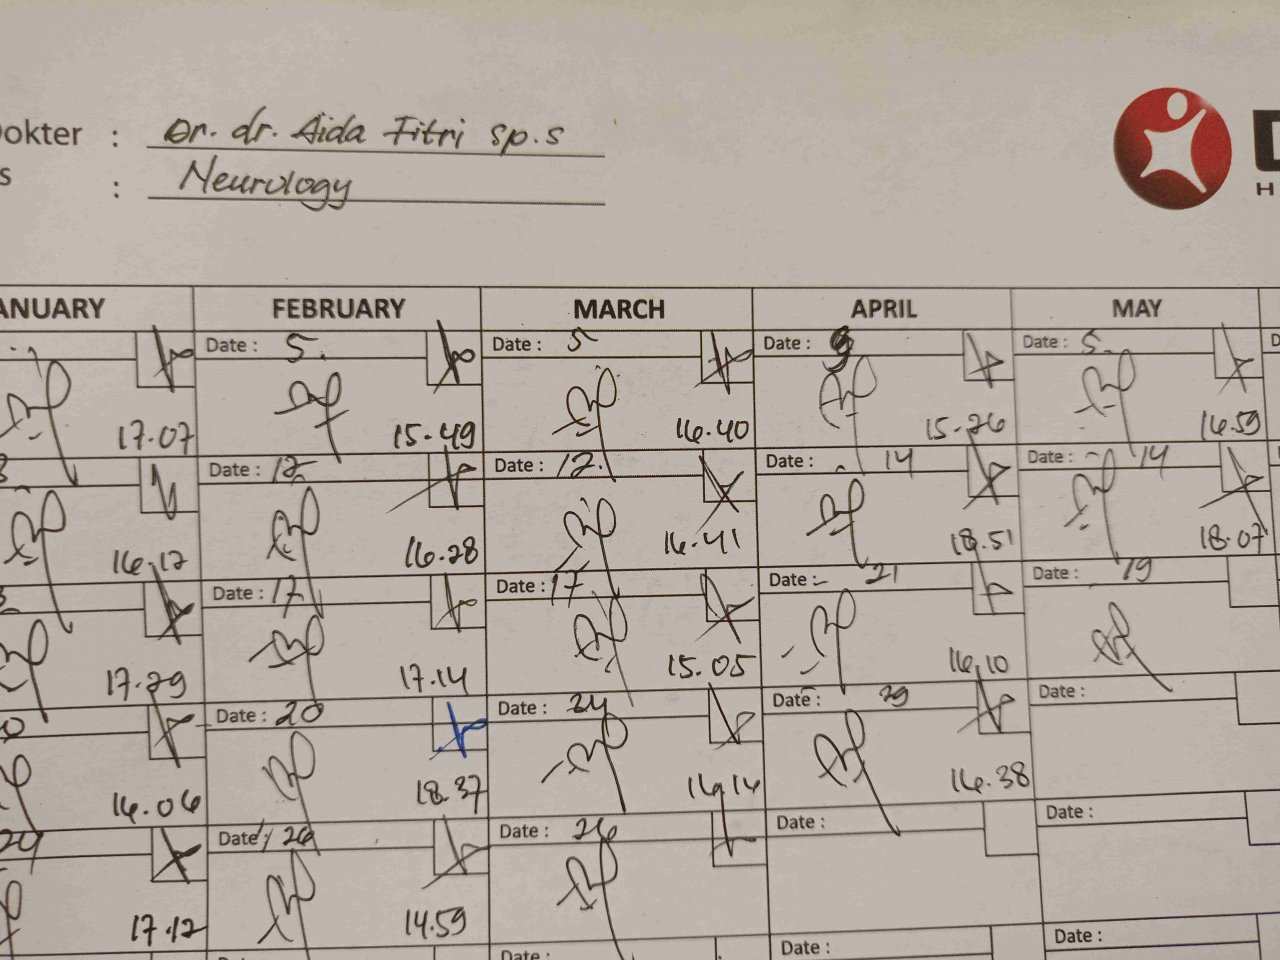 Dokter : Dr. dr. Aida Fitri sp.s
s : Neurology
D
H
ANUARY FEBRUARY MARCH APRIL MAY
Date : 5. Date : 5 Date : 9 Date : 5.
17.07 15.49 16.40 15.26 16.59
Date : 12 Date : 12. Date : 14 Date : 14
16.12 16.28 16.41 18.51 18.07
Date : 17 Date : 17 Date : 21 Date : 19
17.29 17.14 15.05 16.10
Date : 20 Date : 24 Date : 29 Date :
16.06 18.37 16.38
29 Date : 26 Date : 26 Date : Date :
17.12 14.59
Date : Date : Date :